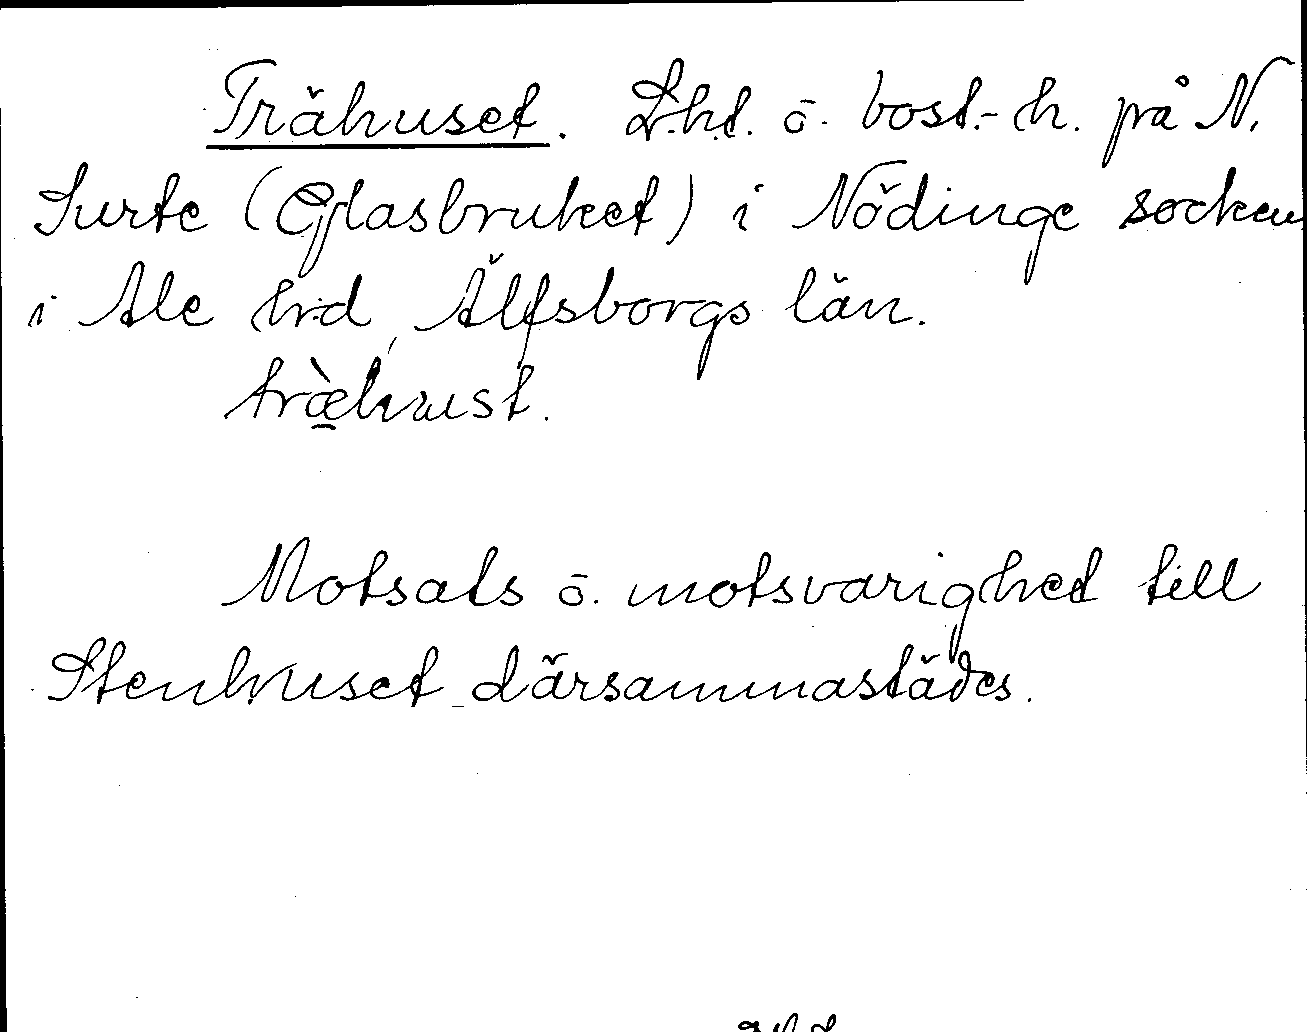 Trähuset. Lht. o. bost.-h. på N.
Surte (Glasbruket) i Nödinge socken
i Ale hrd, Älfsborgs län.
træ̀hust.
Motsats o. motsvarighet till
Stenhuset därsammastädes.